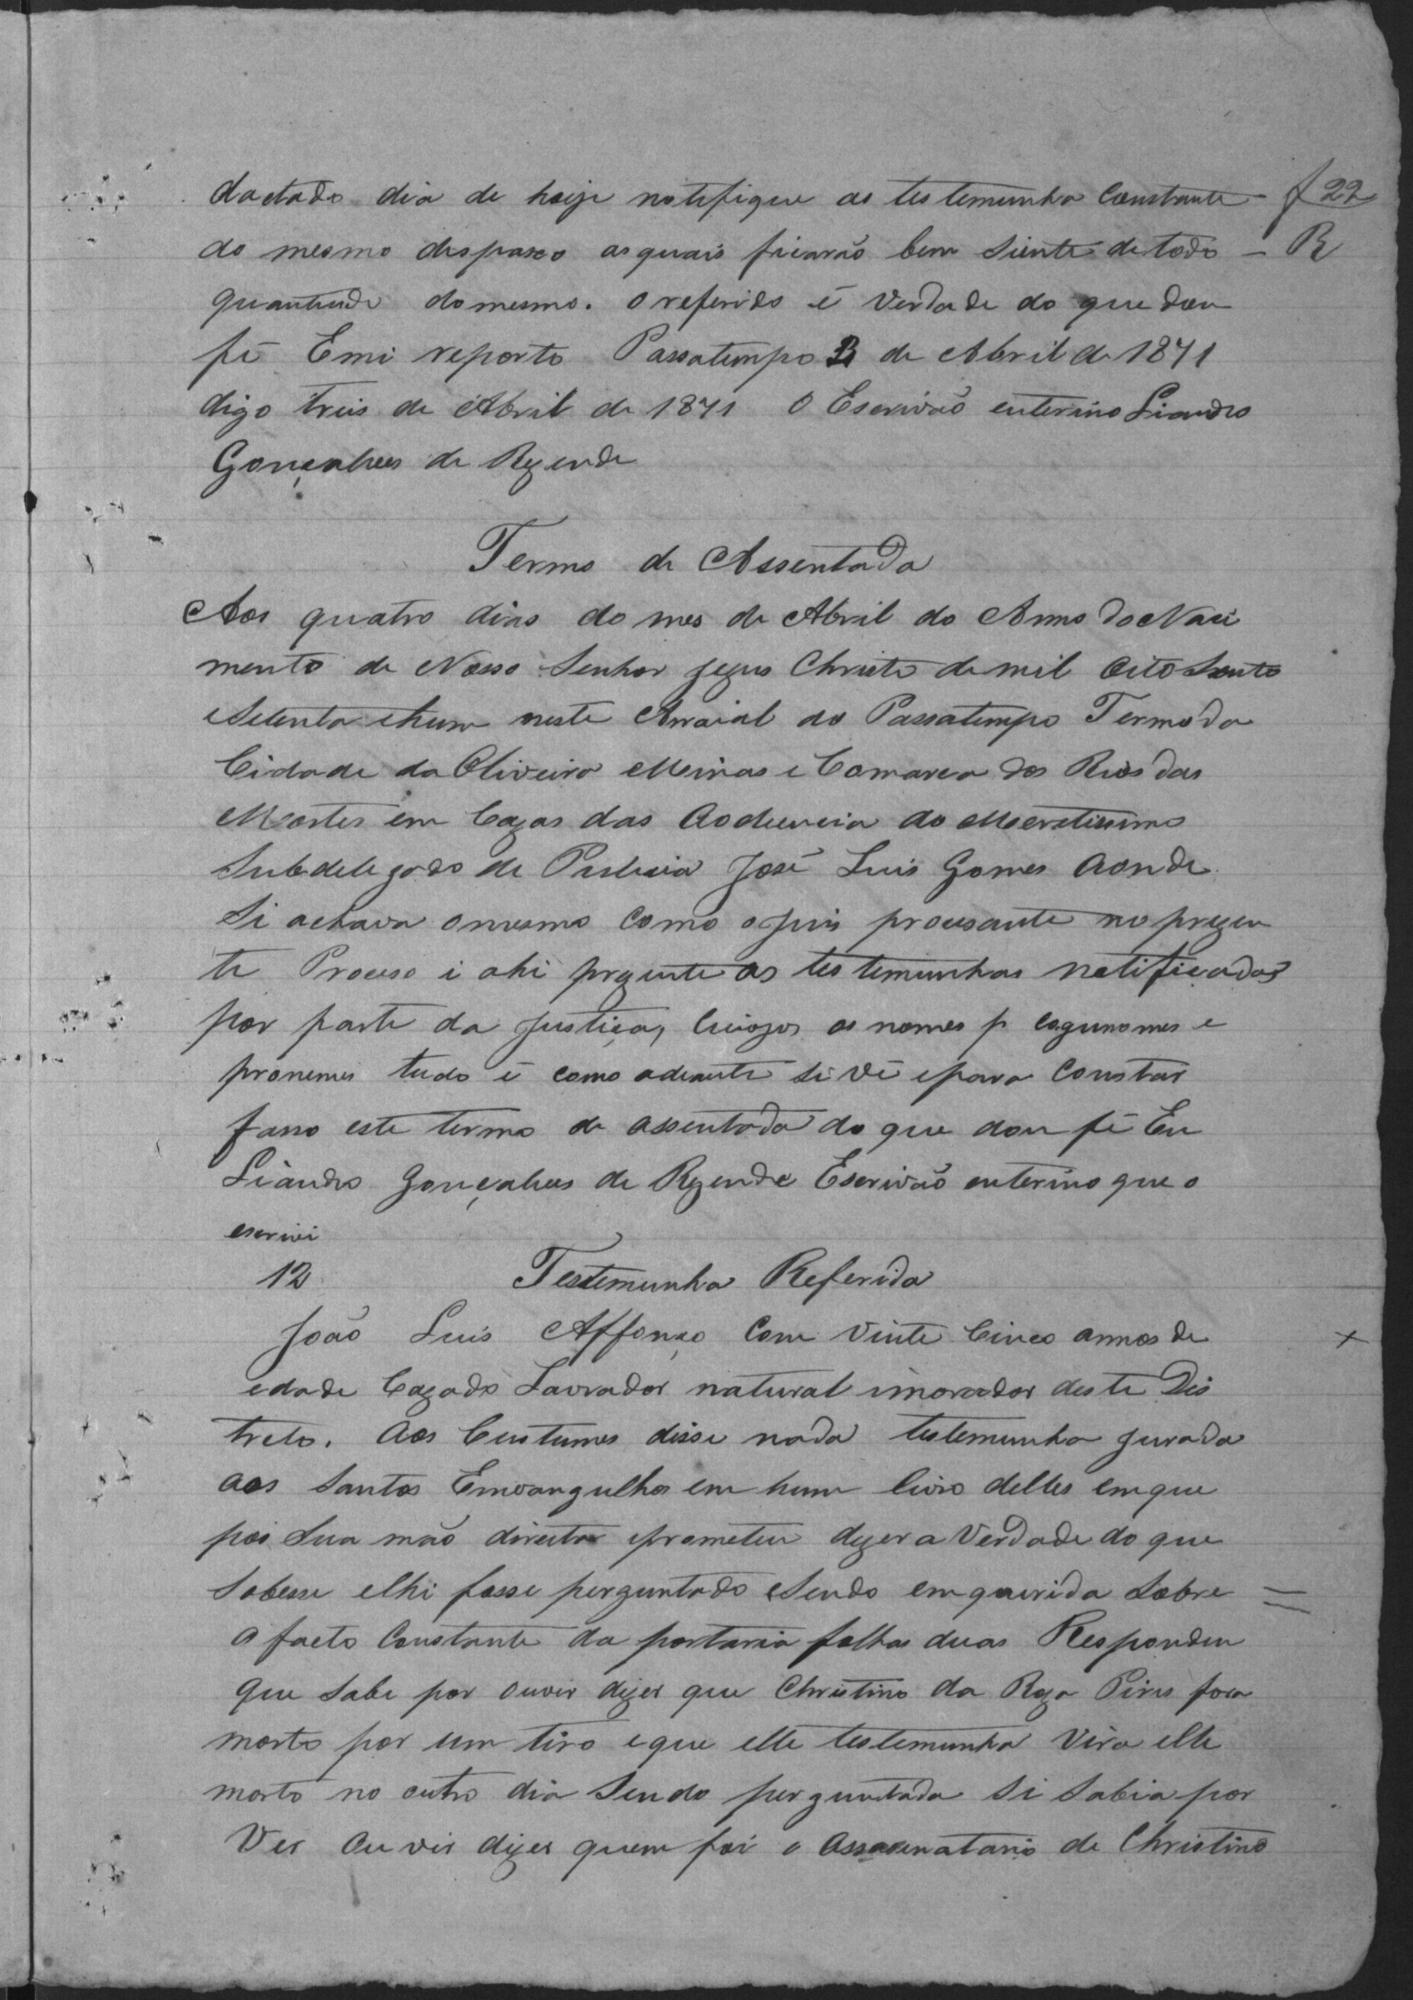 dactado dia de hoije notefique as testemunha Constante - f 22
do mesmo despaxo as quais ficarão bem Siente de todo - R
quantude do mesmo. o referido é Verdade do que dou
fé Emi reporto Passatempo 3 de Abril de 1871
digo treis de Abril de 1871 O Escrivão enterino Liandro
Gonçalves de Rezende
Termo de Assentada
Aos quatro dias do mes de Abril do Anno do Naci
mento de Nosso Senhor Jezus Christo de mil oito Sento
e Setenta ehum neste Arraial do Passatempo Termo da
Cidade da Oliveira Minas e Comarca dos Rios das
Mortes em Cazas das Aodiencia do Meretissimo
Subdelegado de Pulicia José Luis Gomes aonde
Si achava o mesmo como o Juis procesante no prezen
te Proceso i ahi prezente as testemunhas notificadas
por parte da Justiça, Cuiozos os nomes p cognomes e
pronemes tudo é como adeante Si Vé epara Constar
fasso este termo de assentada do que dou fé Eu
Liandro Gonçalves de Rezende Escrivão enterino que o
escrivi
12 Testemunha Referida
João Luis Affonço Com Vinte Cinco annos de
edade Cazado Lavrador natural imorador deste Dis
treto. Aos Custumes disse nada testemunha jurada
aos Santos Emvangulhos em hum livro delles em que
pois Sua mão direita eprometeu dizer a Verdade do que
Sobesse elhi fosse perguntado e Sendo emquerida Sobre =
o facto Constante da portaria folhas duas Respondeu
que Sabe por ouvir dizer que Christino da Roza Pires fora
morto por um tiro eque elle testemunha Vira elle
morto no outro dia Sendo perguntada Si Sabia por
Ver ouvir dizer quem foi o assasenatario de Christino